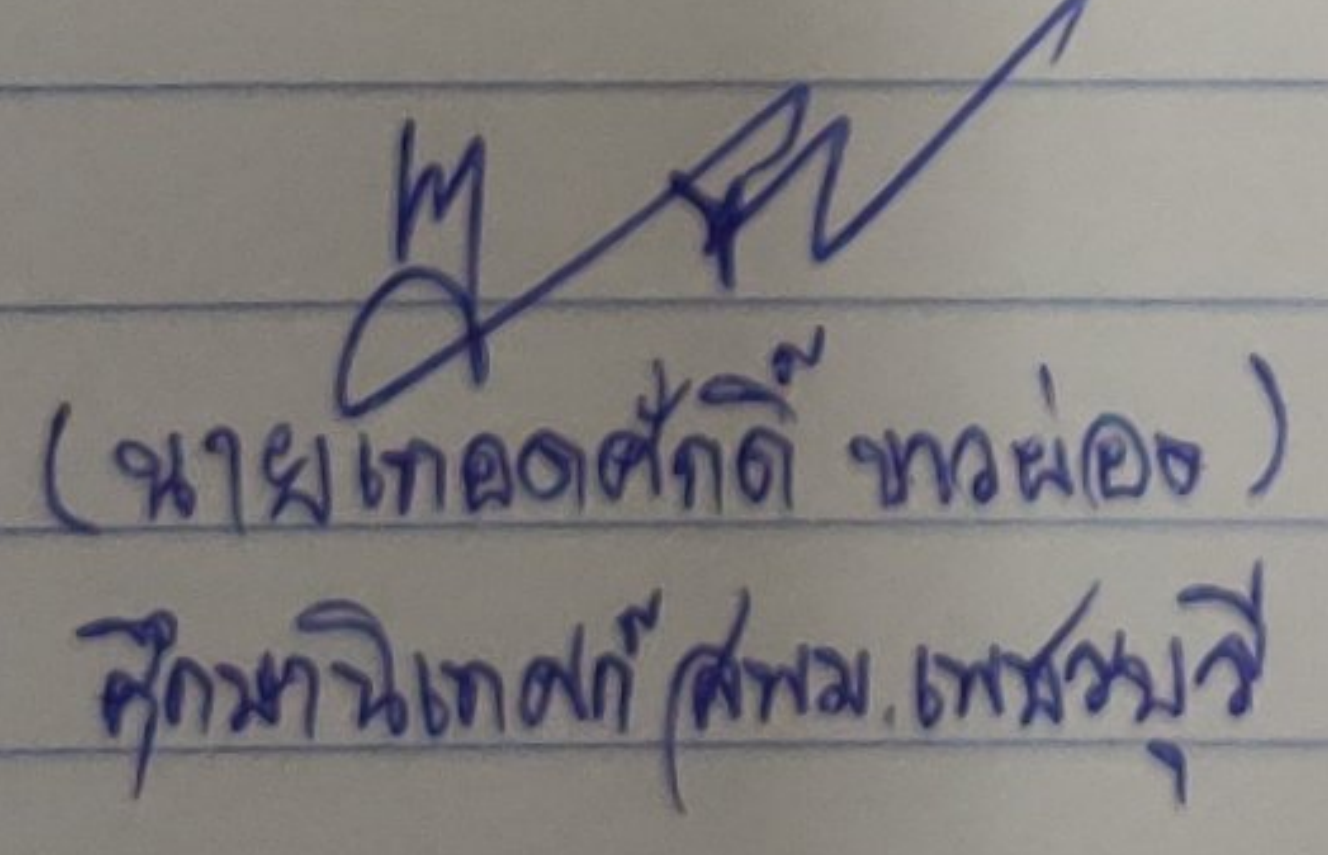 (นายเทอดศักดิ์ ขาวผ่อง)
ศึกษานิเทศก์ สพม.เพชรบุรี